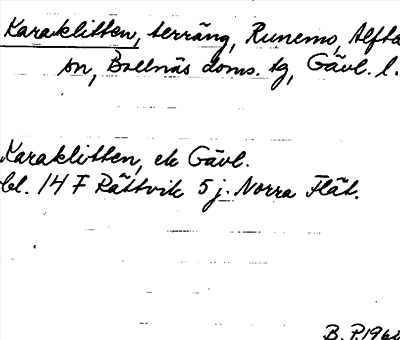 Karaklitten, terräng, Runemo, Alfta
sn, Bollnäs doms. tg, Gävl. l.
Karaklitten, ek Gävl.
bl. 14 F Rättvik 5 j. Norra Flät.
B. P. 1960